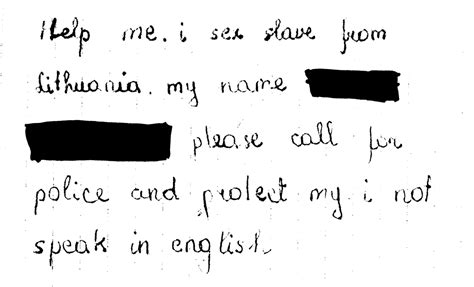 Help me. i sex slave from
Lithuania. my name
please call for
police and protect my i not
speak in english